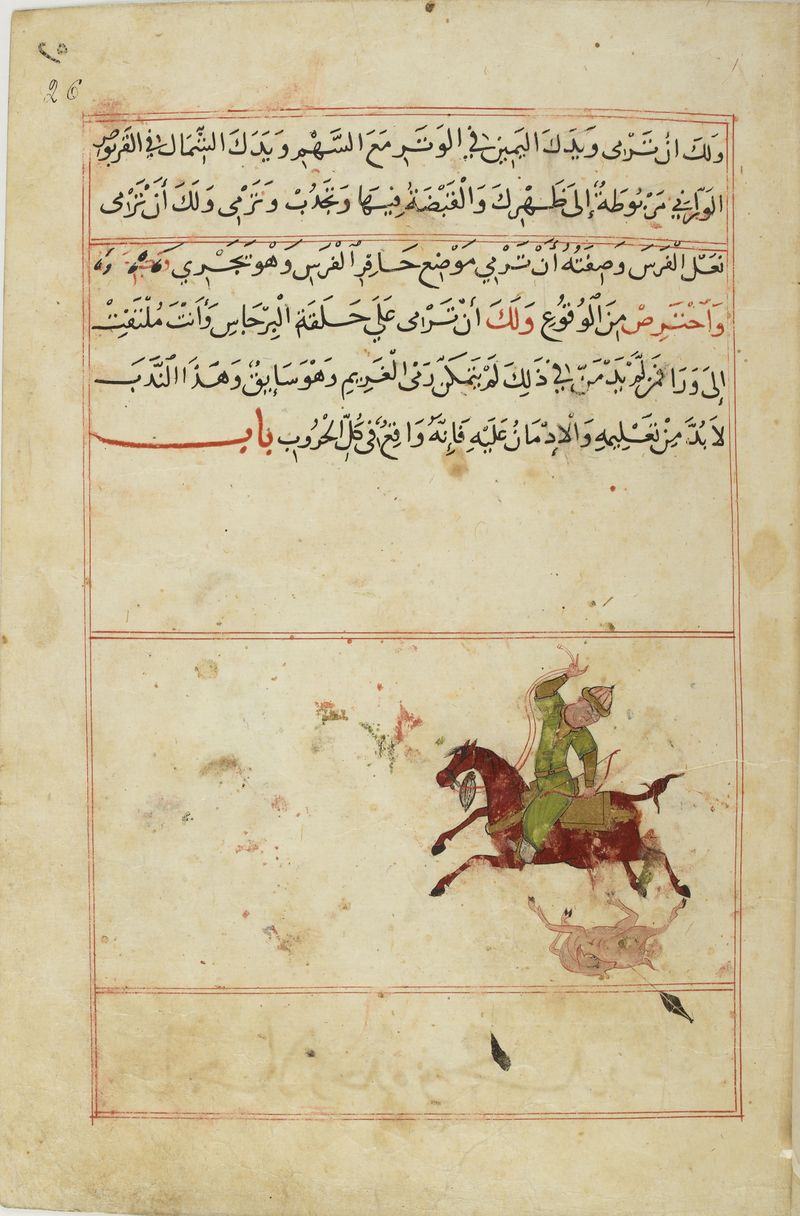 26
وَلَكَ انْ تَرْمى وَيَدَكَ اليَمِين في الوَتَرِ مَعَ السَّهْمِ وَيَدَكَ الشِّمَال في القَربُوصِ
الوَرَّانِي مَرْبُوطَةٌ إِلَى ظَهْرِكَ وَالْقَبْضَةُ فِيهَا وَتَجْذُبْ وَتَرْمى وَلَكَ أَنْ تَرْمى
نَعْلَ الْفَرَسَ وَصِفَتُهُ أَنْ تَرْمِي مَوْضِع حَافِرِ الْفَرَسِ وَهْوَ يَجْرِي
وَاَحْتَرِصْ مِنَ الْوُقُوعِ وَلَكَ أَنْ تَرْمى عَلَى حَلَقَةِ الْبِرْجَاسِ وَأَنْتَ مُلْتَفِتْ
إِلَى وَرَا فَمَنْ لَمْ يَدْمَنّ في ذَلِكَ لَمْ يَتَمَكَّن رَمْىَ الْغَرِيمِ وَهْوَ سَايِقٌ وَهَذَا النَّدَبَ
لاَ بُدَّ مِنْ تَعْلِيمِهِ وَالْاِدْمَانُ عَلَيْهِ فَإِنَّهُ وَاقِعٌ فى كُلِّ الْحُرُوبِ باب